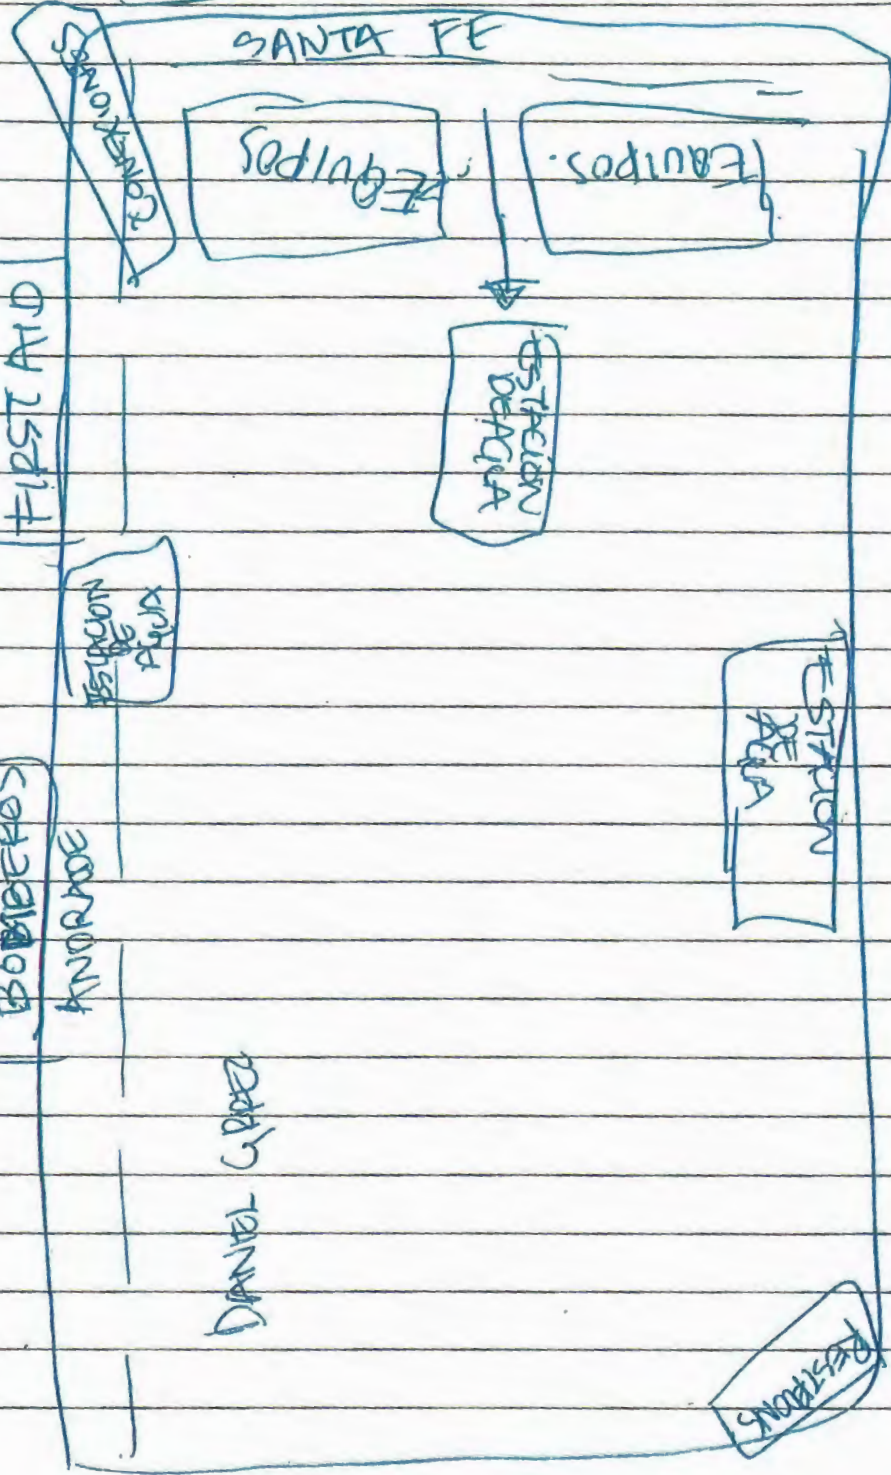 SANTA FE
CONEXIONES
EQUIPOS
EQUIPOS.
FIRST AID
ESTACION
DE AGUA
ESTACION
DE
AGUA
ESTACION
DE
AGUA
BOMBEROS
ANDRADE
DANIEL